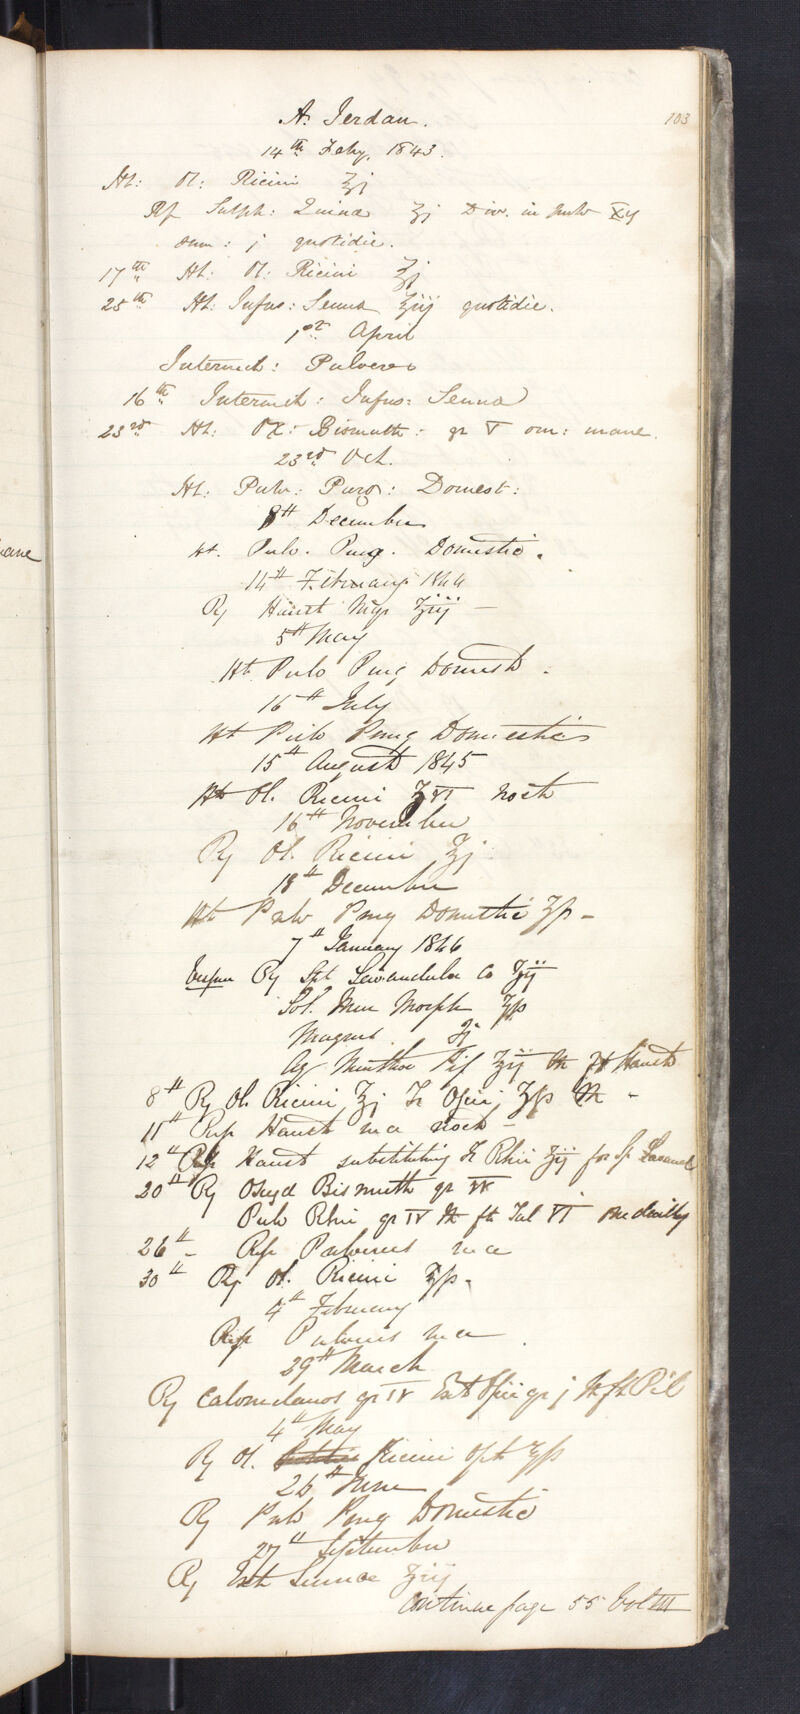 103
A. Jerdan.
14th Feby. 1843.
Ht: Ol: Ricini ℥j
Rp Sulph: Quinæ ʒj Div. in Pulv xij
sum: j quotidie.
17th Ht: Ol: Ricini ℥j
25th Ht: Infus: Senna ℥iij quotidie.
1st April
Intermitt: Pulveres
16th Intermitt: Infus: Senna
23rd Ht: Ox: Bismuth: gr V om: mane.
23rd Oct.
Ht: Pulv: Purg: Domest:
8th December
Ht. Pulv. Purg. Domestic.
14th February 1844
Rx Haust Nigr ℥iij
5th May
Ht Pulv Purg Domest.
16th July
Ht Pulv Purg Domestic
15th August 1845
Ht Ol. Ricini ʒVI noct
16th November
Rx Ol. Ricini ℥j
18th December
Ht Pulv Purg Domestic ʒß
7th January 1846
Rx Spt Lavandulæ Co ʒij
Sol. Mur Morph ʒß
Magnes ʒj
Aq Menthæ Pip ℥ij M ft Haust
8th Rx Ol. Ricini ℥j Tr Opii ʒß M
11th Rep Haust m a noct
12th Rep Haust substituting Tr Rhei ʒij for Sp Lavand
20th Rx Oxyd Bismuth gr IV
Pulv Rhei gr IV M ft Tal VI one daily
26th Rep Pulveres m a
30th Rx Ol. Ricini ℥ß
4th February
Rep Pulveres m a
29th March
Rx Calomelanos gr IV Ext Opii gr j M ft Pil
4th May
Rx Ol. Ricini Opt ℥ß
26th June
Rx Pulv Purg Domestic
27th September
Rx Ext Sennæ ʒiij
Continue page 55 Vol III
ane